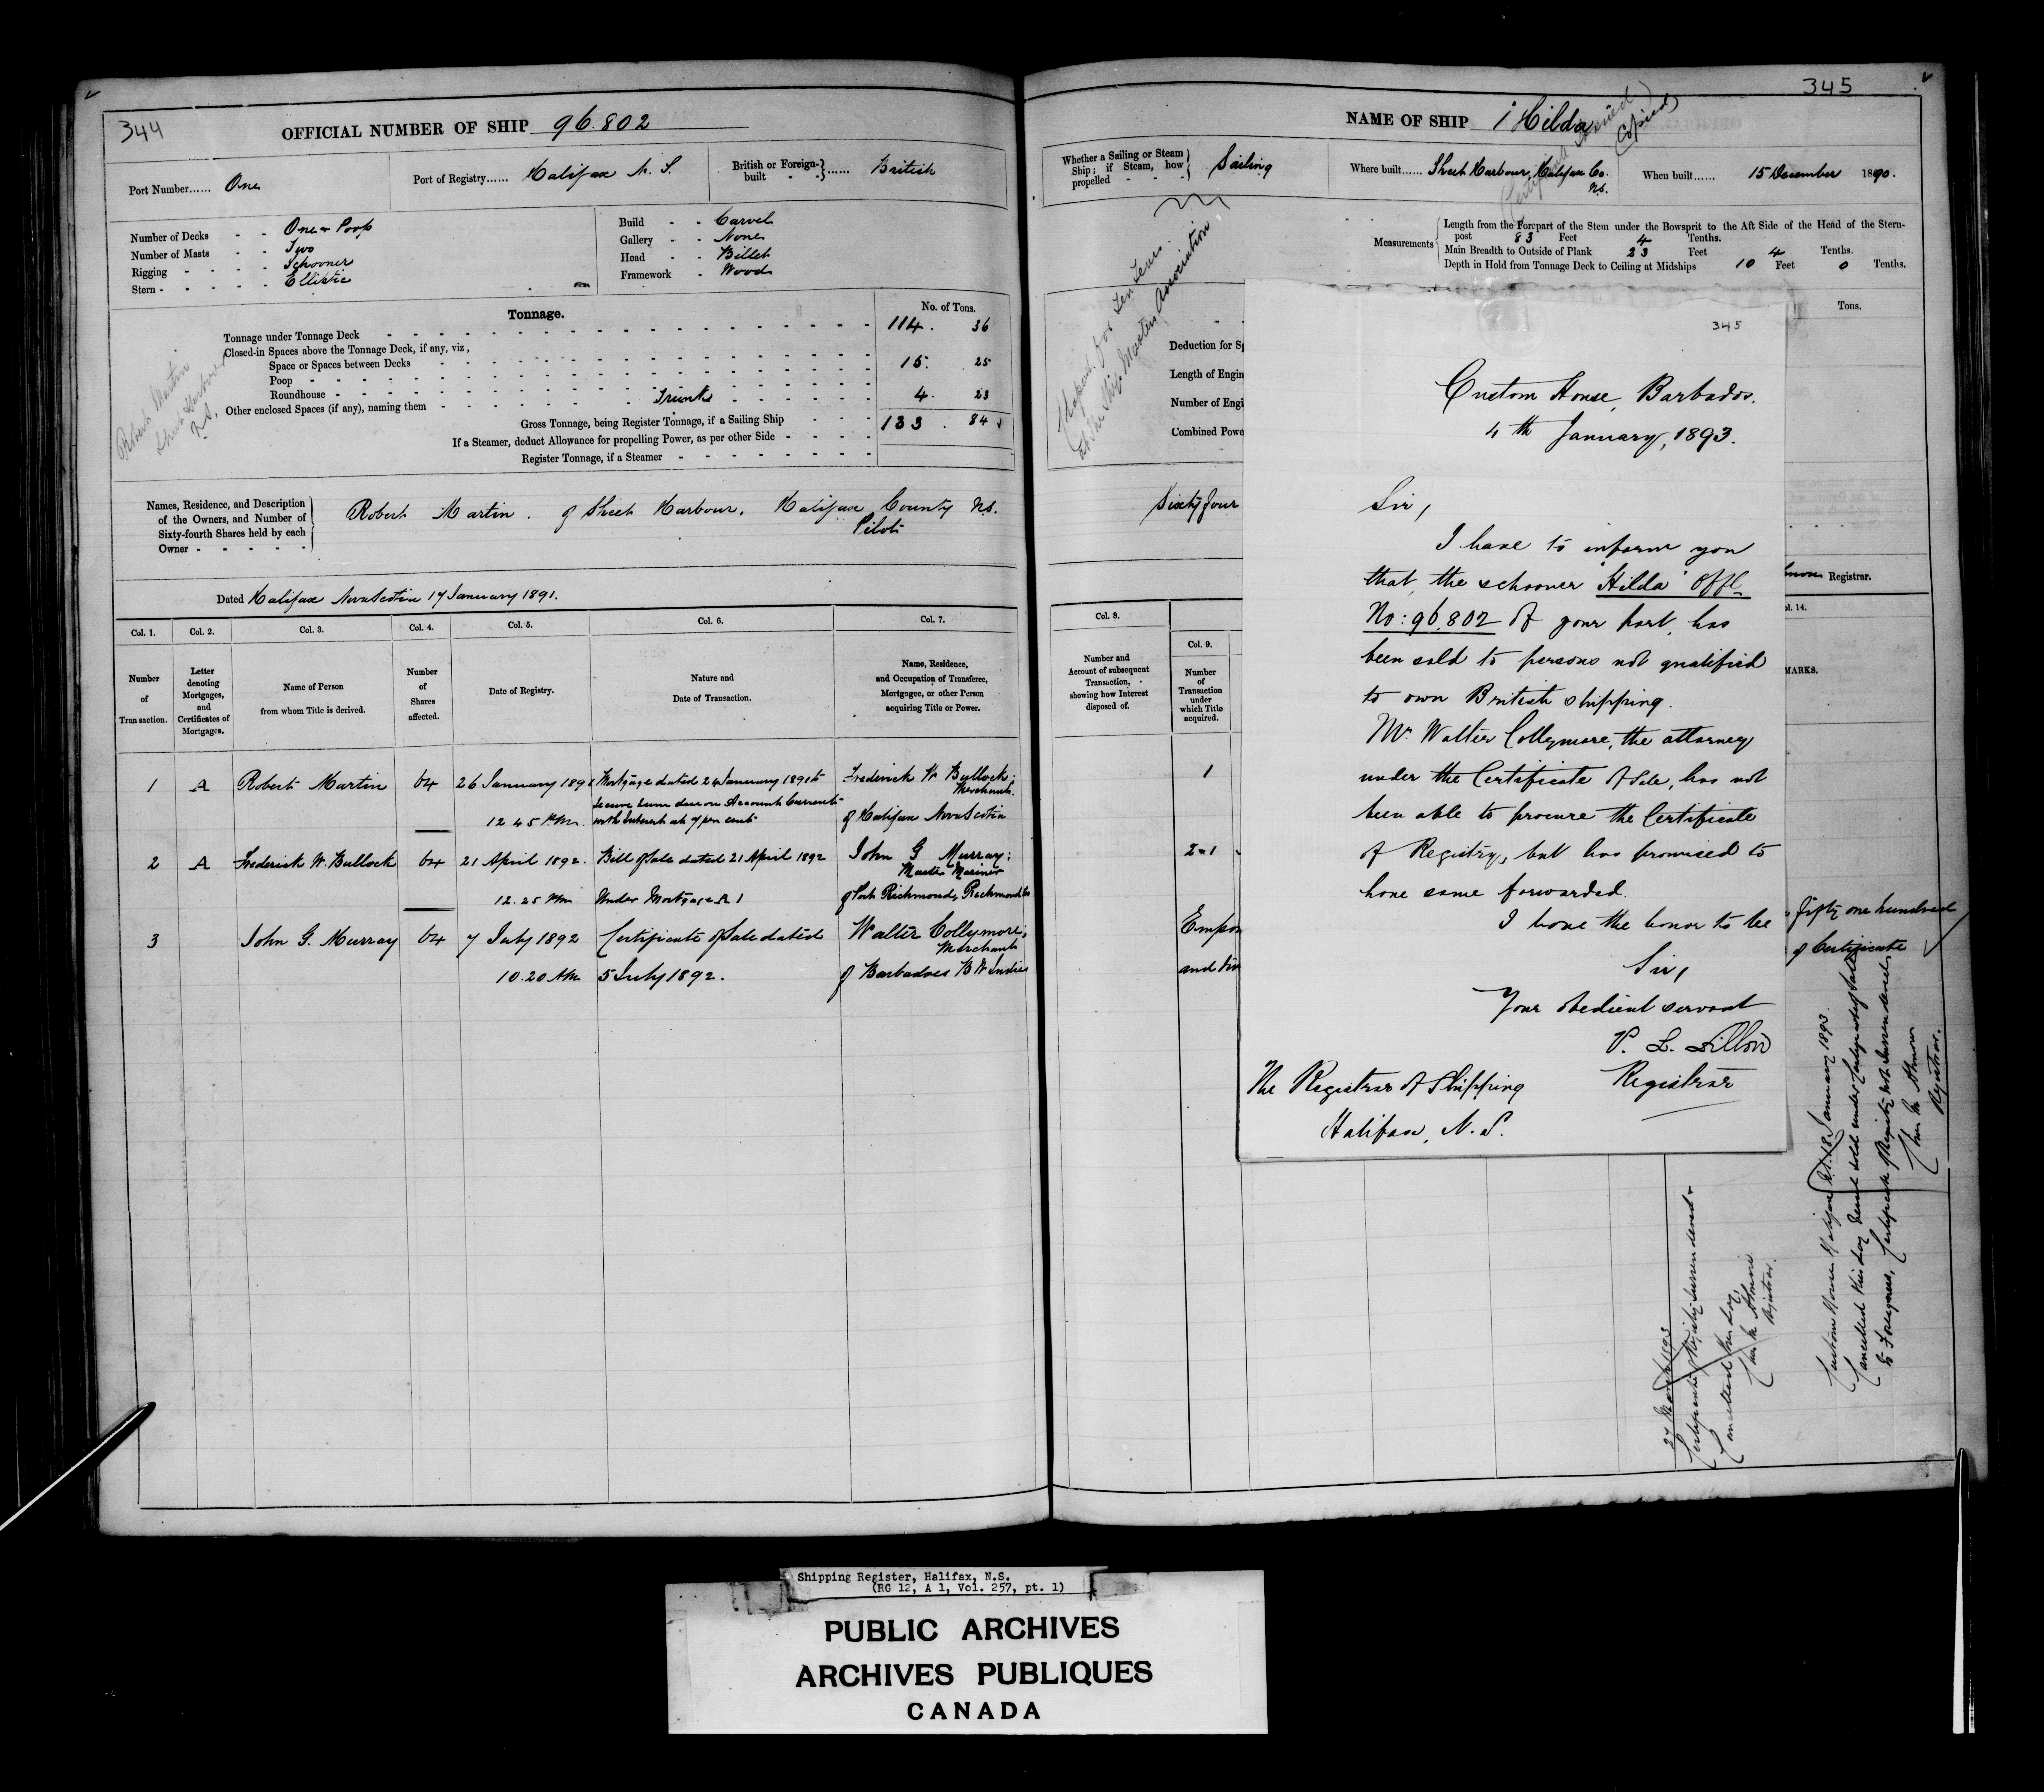 344
OFFICIAL NUMBER OF SHIP 96.802
Port Number...... One
Port of Registry...... Halifax N. S.
British or Foreign-built - - } ...... British
Number of Decks - - One & Poop
Number of Masts - - Two
Rigging - - - - Schooner
Stern - - - - - Elliptic
Build - - Carvel
Gallery - - None
Head - - Billet
Framework - Wood
Tonnage.
No. of Tons.
Tonnage under Tonnage Deck 114. 36
Closed-in Spaces above the Tonnage Deck, if any, viz,
Space or Spaces between Decks
Poop 15. 25
Roundhouse
Other enclosed Spaces (if any), naming them Trunks 4. 23
Gross Tonnage, being Register Tonnage, if a Sailing Ship 133. 84
If a Steamer, deduct Allowance for propelling Power, as per other Side
Register Tonnage, if a Steamer
Robert Martin
Sheet Harbour
N.S.
Names, Residence, and Description
of the Owners, and Number of
Sixty-fourth Shares held by each
Owner - - - - -
Robert Martin. of Sheet Harbour, Halifax County N.S.
Pilot
Dated Halifax Nova Scotia 17 January 1891.
Col. 1. Col. 2. Col. 3. Col. 4. Col. 5. Col. 6. Col. 7.
Number of Transaction.
Letter denoting Mortgages, and Certificates of Mortgages.
Name of Person from whom Title is derived.
Number of Shares affected.
Date of Registry.
Nature and Date of Transaction.
Name, Residence, and Occupation of Transferee, Mortgagee, or other Person acquiring Title or Power.
1 A Robert Martin 64 26 January 1891 Mortgage dated 24 January 1891 to Frederick W. Bullock;
secure sum due on Account Current Merchant.
12 45 P.M. with Interest at 7 per cent of Halifax Nova Scotia
2 A Frederick W. Bullock 64 21 April 1892. Bill of Sale dated 21 April 1892 John G Murray;
Master Mariner
12.25 PM Under Mortgage A 1 of Port Richmond, Richmond Co
3 John G. Murray 64 7 July 1892 Certificate of Sale dated Walter Collymore;
Merchant
10.20 AM 5 July 1892. of Barbadoes B W Indies
345
NAME OF SHIP Hilda
Certificate Issued
(Copied)
Whether a Sailing or Steam Ship; if Steam, how propelled - - - } Sailing
Where built...... Sheet Harbour, Halifax Co. N.S.
When built...... 15 December 1890.
Measurements
Length from the Forepart of the Stem under the Bowsprit to the Aft Side of the Head of the Stern-post 83 Feet 4 Tenths.
Main Breadth to Outside of Plank 23 Feet 4 Tenths.
Depth in Hold from Tonnage Deck to Ceiling at Midships 10 Feet 0 Tenths.
Ship Masters Association
Tons.
Deduction for Sp
Length of Engin
Number of Engi
Combined Powe
Sixty four
Registrar.
Col. 8.
Number and Account of subsequent Transaction, showing how Interest disposed of.
Col. 9.
Number of Transaction under which Title acquired.
ol. 14.
MARKS.
1
2-1
Empow
and div
fifty one hundred
of Certificate
345
Custom House, Barbados.
4th January, 1893.
Sir,
I have to inform you
that, the schooner "Hilda" Offl.
No: 96,802 of your port, has
been sold to persons not qualified
to own British shipping.
Mr. Walter Collymore, the attorney
under the Certificate of Sale, has not
been able to procure the Certificate
of Registry, but has promised to
have same forwarded.
I have the honor to be
Sir,
Your obedient servant
Registrar
The Registrar of Shipping
Halifax, N. S.
Custom House Halifax N.S. 18 January 1893.
Cancelled this day Vessel sold under Certificate of Sale
to Foreigners, Certificate of Registry not surrendered
Registrar.
27 March 1893
Certificate of Registry surrendered &
Cancelled this day,
Registrar.
Shipping Register, Halifax, N.S.
(RG 12, A 1, Vol. 257, pt. 1)
PUBLIC ARCHIVES
ARCHIVES PUBLIQUES
CANADA